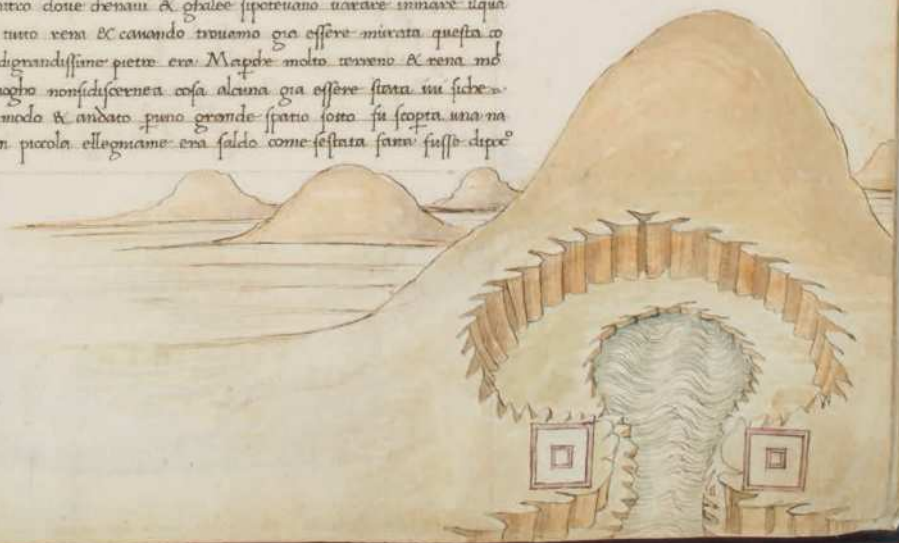 dove chenavi & ghalee sipotevano varare in mare uqua
tutto rena & cavando trovamo gia essere murata questa co
digrandissime pietre era Mapche molto terreno & rena
nonsidiscernea cosa alcuna gia essere stata iui siche
modo & andato puno grande spatio sotto fu scopta una na
piccola ellegniame era saldo come sestata fatta fusse dipoco